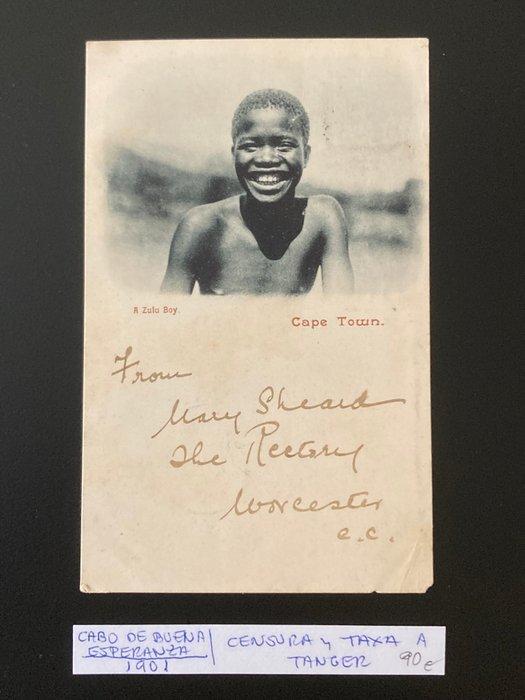 A Zulu Boy.
Cape Town.
From
Mary Sheard
The Rectory
Worcester
C.C.
CABO DE BUENA
ESPERANZA
1901
CENSURA y TAXA A
TANGER 90€